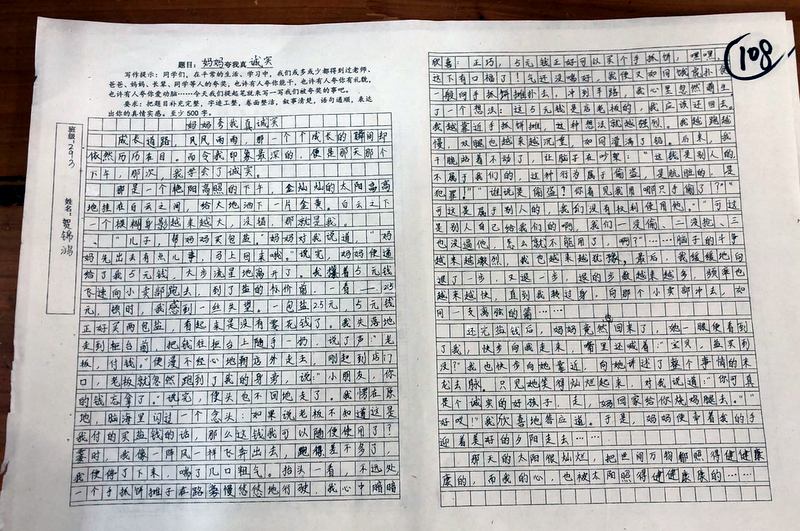 题目：妈妈夸我真诚实
写作提示：同学们，在平常的生活、学习中，我们或多或少都得到过老师、
爸爸、妈妈、长辈、同学等人的夸奖，也许有人夸你有能干，也许有人夸你有礼貌，
也许有人夸你爱动脑……今天我们提起笔来写一写我们被夸奖的事吧。
要求：把题目补充完整，字迹工整，卷面整洁，叙事清楚，语句通顺，表达
出你的真情实感。至少500字。
班级：293
姓名：贺锦鸿
妈妈夸我真诚实
成长道路，风风雨雨，那一个个成长的瞬间却
依然历历在目。而令我印象最深的，便是那天那个
下午，那次，我带去了诚实。
那是一个艳阳高照的下午，金灿灿的太阳高高
地挂在白云之间，给大地洒下一片金黄。白云之下
一个模糊身影越来越大，没错，那就是我。
“儿子，帮妈妈买包盐。”妈妈对我说道，“妈
妈先出去有点儿事，马上回来哦。”说完，妈妈便递
给了我5元钱，大步流星地离开了。我攥着5元钱
飞速向小卖部跑去，到了盐的标价前，一看——2.5
元，顿时，我感到一丝失望。一包盐2.5元，5元钱
正好买两包盐，看起来是没有零花钱了。我失落地
走到柜台前，把钱往柜台上随手一扔，说了声“老
板，付钱。”便漫不经心地朝店外走去，刚起到店门
口，老板就忽然跑到了我的身旁，说：“小朋友，你
的钱忘拿了。”说完，便头也不回地走了。我愣在原
地，脑海里闪过一个念头：如果说老板不知道这是
我付的买盐钱的话，那么这钱我可以随便使用了？
霎时，我像一阵风一样飞奔出去，跑得差不多了
我便停了下来，喘了几口粗气。抬头一看，不远处
一个手抓饼摊子在路旁慢悠悠地行驶，我心中暗暗
欣喜：正巧，5元钱正好可以买个手抓饼，嘿嘿，
这下有口福了！气还没喘好，我便又如同饿虎扑食
一般向手抓饼摊扑去，冲到半路，我心里忽然萌生
了一个想法：这5元钱是店老板的，我应该还回去。
我越靠近手抓饼摊，这种想法就越强烈。我越跑越
慢，双腿也越来越沉重，如同灌满了铅。后来，我
干脆站着不动了，让脑子在吵架：“这钱是别人的，
不属于我们的，这种行为属于偷盗，是肮脏的，是
犯罪！”“谁说是偷盗？你看见我用哪只手偷了？”“
可这是属于别人的，我们没有权利使用他。”“可这
是别人自己给我们的啊，我们一没偷、二没抢、三
也没逼他，怎么就不能用了，啊？”……脑子的斗争
越来越激烈，我也越来越犹豫。最后，我缓缓地向
退了一步，又退一步，退的步数越来越多，频率也
越来越快，直到我转过身，向那个小卖部冲去，如
同一支离弦的箭……
还完盐钱后，妈妈竟然回来了，她一眼便看到
了我，快步向我走来，嘴里还喊着：“宝贝，盐买到
没？”我也快步向她靠近，向她讲述了整个事情的来
龙去脉。只见她笑得灿烂起来，对我说道：“你可真
是个诚实的好孩子，走，妈妈回家给你烧鸡腿去。”“
好哎！”我欣喜地答应道。于是，妈妈便牵着我的手
迎着美好的夕阳走去……
那天的太阳很灿烂，把世间万物都照得健健康
康的，而我的心，也被太阳照得健健康康的……
108